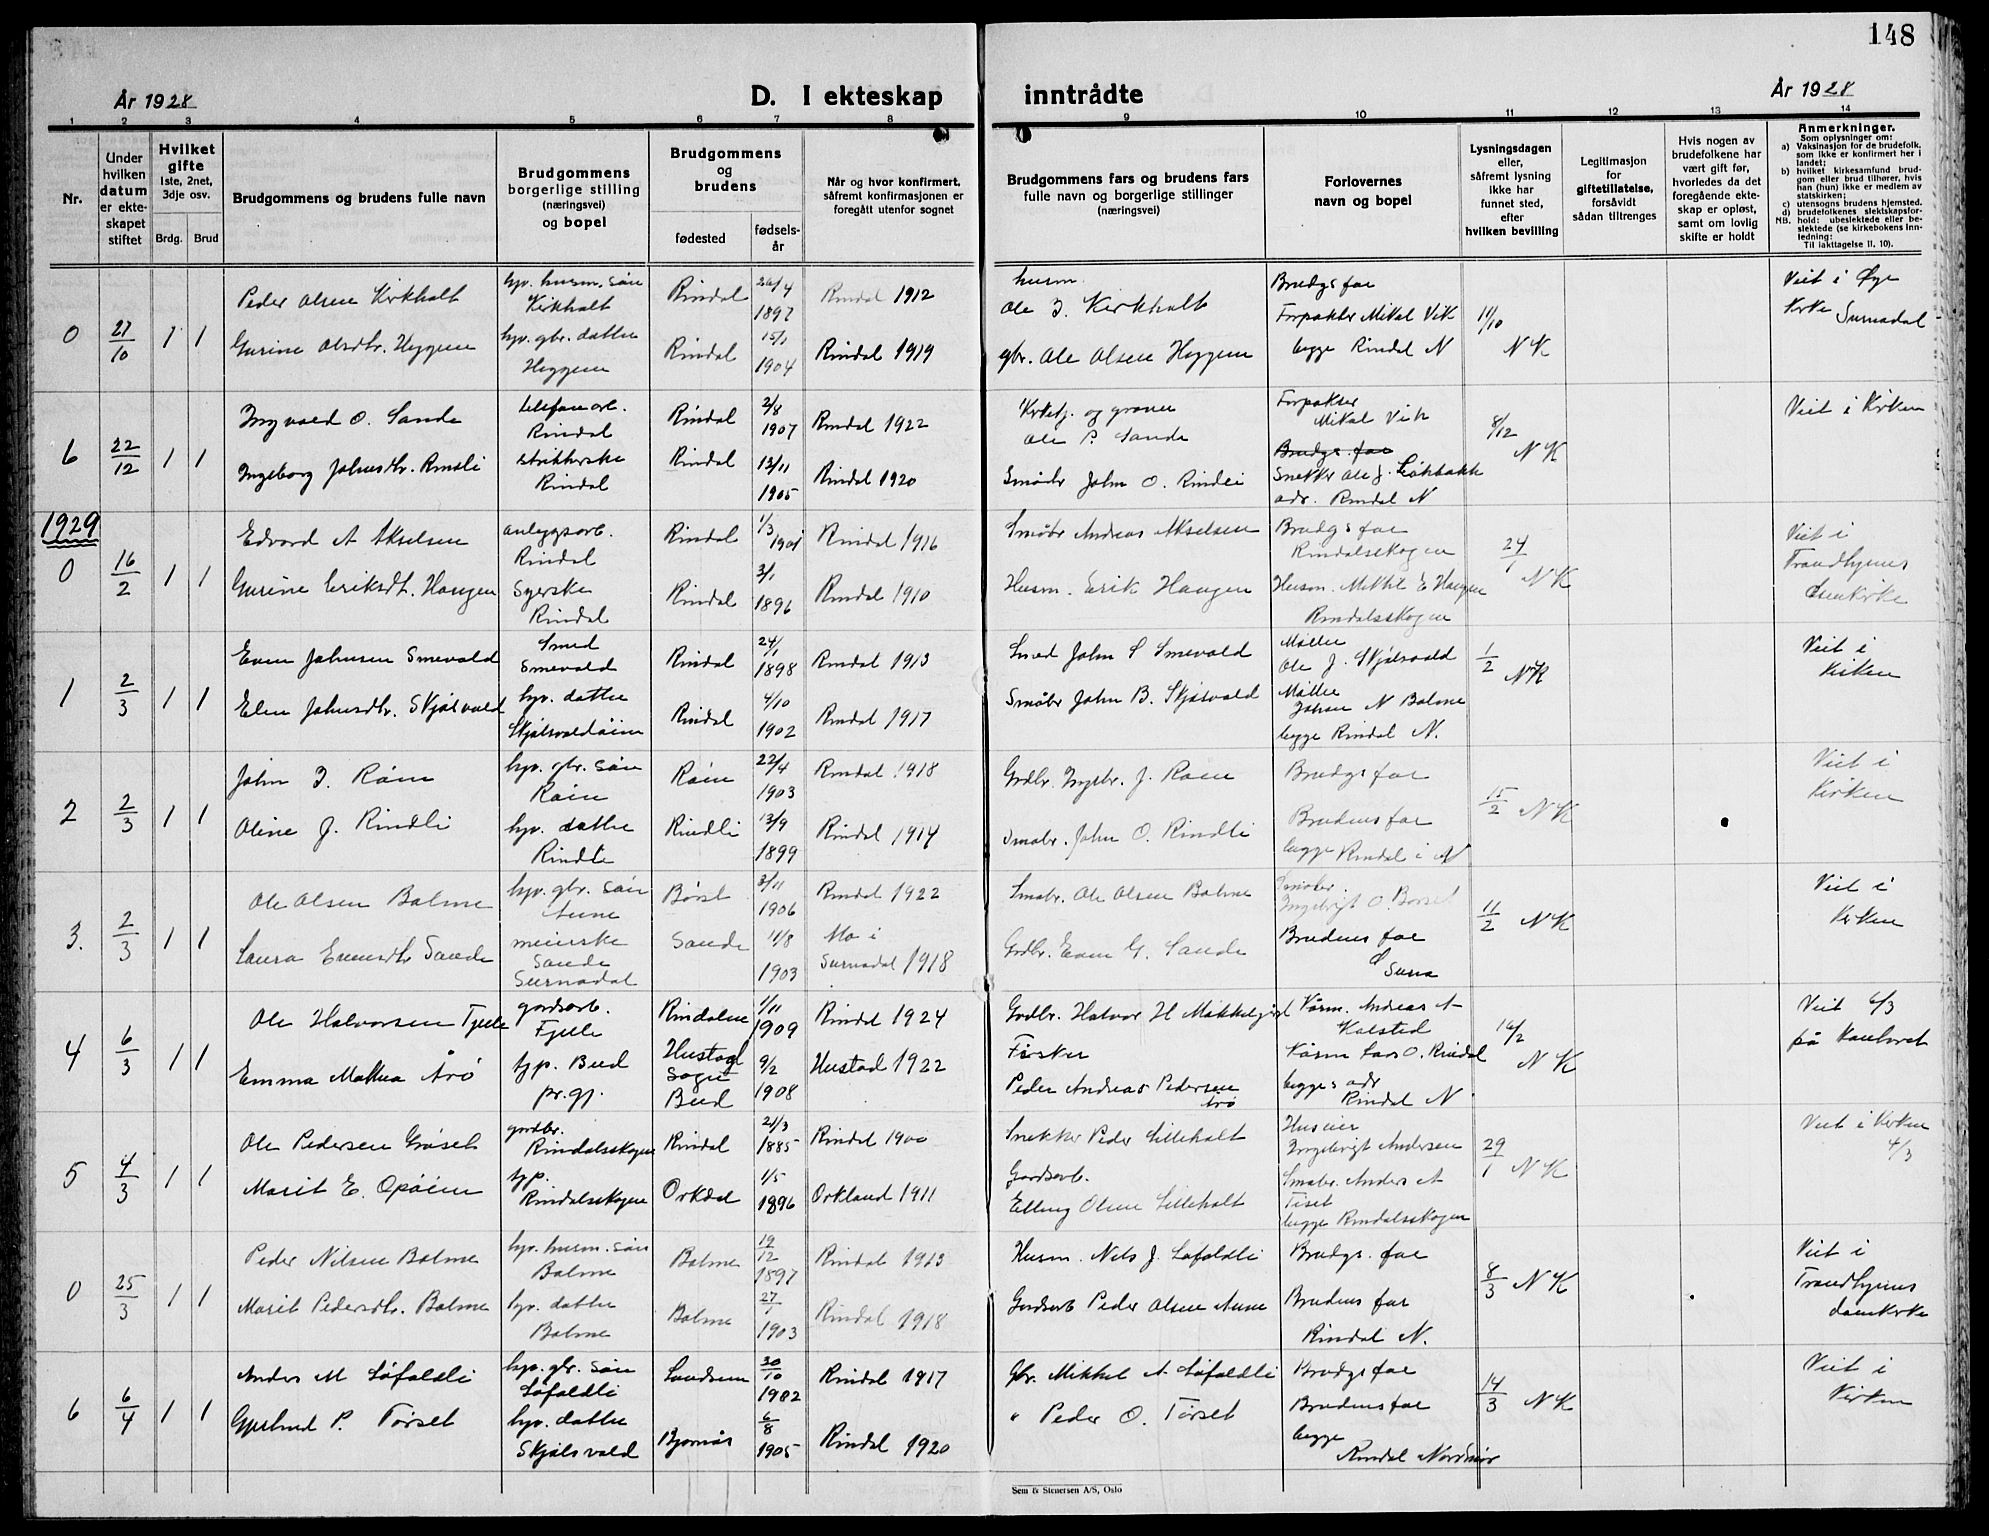 148
År 1928
D. I ekteskap inntrådte
År 1928
1 2 3 4 5 6 7 8 9 10 11 12 13 14
Nr.
Under hvilken datum er ekteskapet stiftet
Hvilket gifte
1ste, 2net, 3dje osv.
Brdg. Brud
Brudgommens og brudens fulle navn
Brudgommens borgerlige stilling (næringsvei) og bopel
Brudgommens og brudens
fødested
fødselsår
Når og hvor konfirmert, såfremt konfirmasjonen er foregått utenfor sognet
Brudgommens fars og brudens fars fulle navn og borgerlige stillinger (næringsvei)
Forlovernes navn og bopel
Lysningsdagen eller, såfremt lysning ikke har funnet sted, efter hvilken bevilling
Legitimasjon for giftetillatelse, forsåvidt sådan tiltrenges
Hvis nogen av brudefolkene har vært gift før, hvorledes da det foregående ekteskap er opløst, samt om lovlig skifte er holdt
Anmerkninger.
Som oplysninger om:
a) Vaksinasjon for de brudefolk, som ikke er konfirmert her i landet;
b) hvilket kirkesamfund brudgom eller brud tilhører, hvis han (hun) ikke er medlem av statskirken;
c) utensogns brudens hjemsted.
d) brudefolkenes slektskapsforhold: ubeslektede eller beslektede (se kirkebokens innledning:
NB.
Til iakttagelse II, 10).
0 27/10 1 1
Peder Olsen Kirkholt hjv. husm. søn Kirkholt Rindal 26/4 1897 Rindal 1912
husm Ole J. Kirkholt Brudgs far 11/10 NK Viet i Øye Kirke Surnadal
Gurine Olsdtr. Heggem hjv. gbr. datter Heggem Rindal 15/1 1904 Rindal 1919
gbr. Ole Olsen Heggem Forpakter Mikal Vik begge Rindal N
6 22/12 1 1
Ingvald O. Sande telefonarb. Rindal Rindal 2/8 1907 Rindal 1922
Kirketj. og graver Ole P. Sande Forpakter Mikal Vik 8/12 NK Viet i Kirken
Ingeborg Johnsdtr. Rindli strikkerske Rindal Rindal 13/11 1905 Rindal 1920
Småbr John O. Rindli Brudgs. far Snekker Ole J. Løkbakk adr. Rindal N
1929
0 16/2 1 1
Edvard A Akselsen anleggsarb. Rindal Rindal 1/3 1901 Rindal 1916
Småbr Andreas Akselsen Brudgs far Rindalsskogen 24/1 NK Viet i Trondhjems domkirke
Gurine Eriksdt. Haugen Syerske Rindal Rindal 3/1 1896 Rindal 1910
Husm. Erik Haugen Husm. Mikkel E Haugen Rindalsskogen
1 2/3 1 1
Even Johnsen Smevold Smed Smevold Rindal 24/1 1898 Rindal 1913
Smed John S Smevold Møller Ole J. Skjølsvold 1/2 NK Viet i Kirken
Elen Johnsdtr. Skjølsvold hjv. datter Skjølsvoldøien Rindal 4/10 1902 Rindal 1917
Småbr John B. Skjølsvold Møller Johan N Bolme begge Rindal N.
2 2/3 1 1
John I. Røen hjv. gbr. søn Røen Røen 22/4 1903 Rindal 1918
Grdbr. Ingebr. J. Røen Brudgs far 15/2 NK Viet i Kirken
Oline J. Rindli hjv. datter Rindli Rindli 13/9 1899 Rindal 1914
Småbr. John O. Rindli Brudens far begge Rindal i N
3. 2/3 1 1
Ole Olsen Bolme hjv. gbr. søn Aune Børset 3/11 1906 Rindal 1922
Småbr. Ole Olsen Bolme Småbr. Ingebrigt O. Børset 11/2 NK Viet i Kirken
Laura Evensdtr Sande meierske Sande Surnadal Sande 11/8 1903 Mo i Surnadal 1918
Grdbr. Even G. Sande Brudens far Surna
4 6/3 1 1
Ole Halvorsen Fjele gårdsarb. Fjele Rindalen 1/11 1909 Rindal 1924
Grdbr. Halvor H Mikkelgjerd Vårm. Andreas A Kolstad 16/2 NK Viet 6/3 på Kontoret
Emma Mathea Årø tjp. Bud pr.gj. Hustad sogn Bud 9/2 1908 Hustad 1922
Fisker Peder Andreas Pedersen Årø Vårm Lars O. Rindal begges adr Rindal N
5 4/3 1 1
Ole Pedersen Grøset gårdbr. Rindalsskogen Rindal 21/3 1885 Rindal 1900
Snekker Peder Lilleholt Huseier Ingebrigt Andersen 29/1 NK Viet i Kirken 4/3
Marit E. Opøien tjp. Rindalsskogen Orkdal 1/5 1896 Orkland 1911
Gårdsarb. Elling Olsen Lilleholt Småbr. Anders A Tiset begge Rindalsskogen
0 25/3 1 1
Peder Nilsen Bolme hjv. husm. søn Bolme Bolme 19/12 1897 Rindal 1913
Husm. Nils J. Løfaldli Brudgs. far 8/3 NK Viet i Trondhjems domkirke
Marit Pedersdtr. Bolme hjv. datter Bolme Bolme 27/1 1903 Rindal 1918
Gårdsarb Peder Olsen Aune Brudens far Rindal N.
6 6/4 1 1
Anders M Løfaldli hjv. gbr. søn Løfaldli Landsem 30/10 1902 Rindal 1917
Gbr. Mikkel A. Løfaldli Brudgs far 14/3 NK Viet i Kirken
Gjertrud P. Tørset hjv. datter Skjølsvold Bjørnås 6/8 1905 Rindal 1920
" Peder O. Tørset Brudens far begge Rindal Nordmør
Sem & Stenersen A/S, Oslo